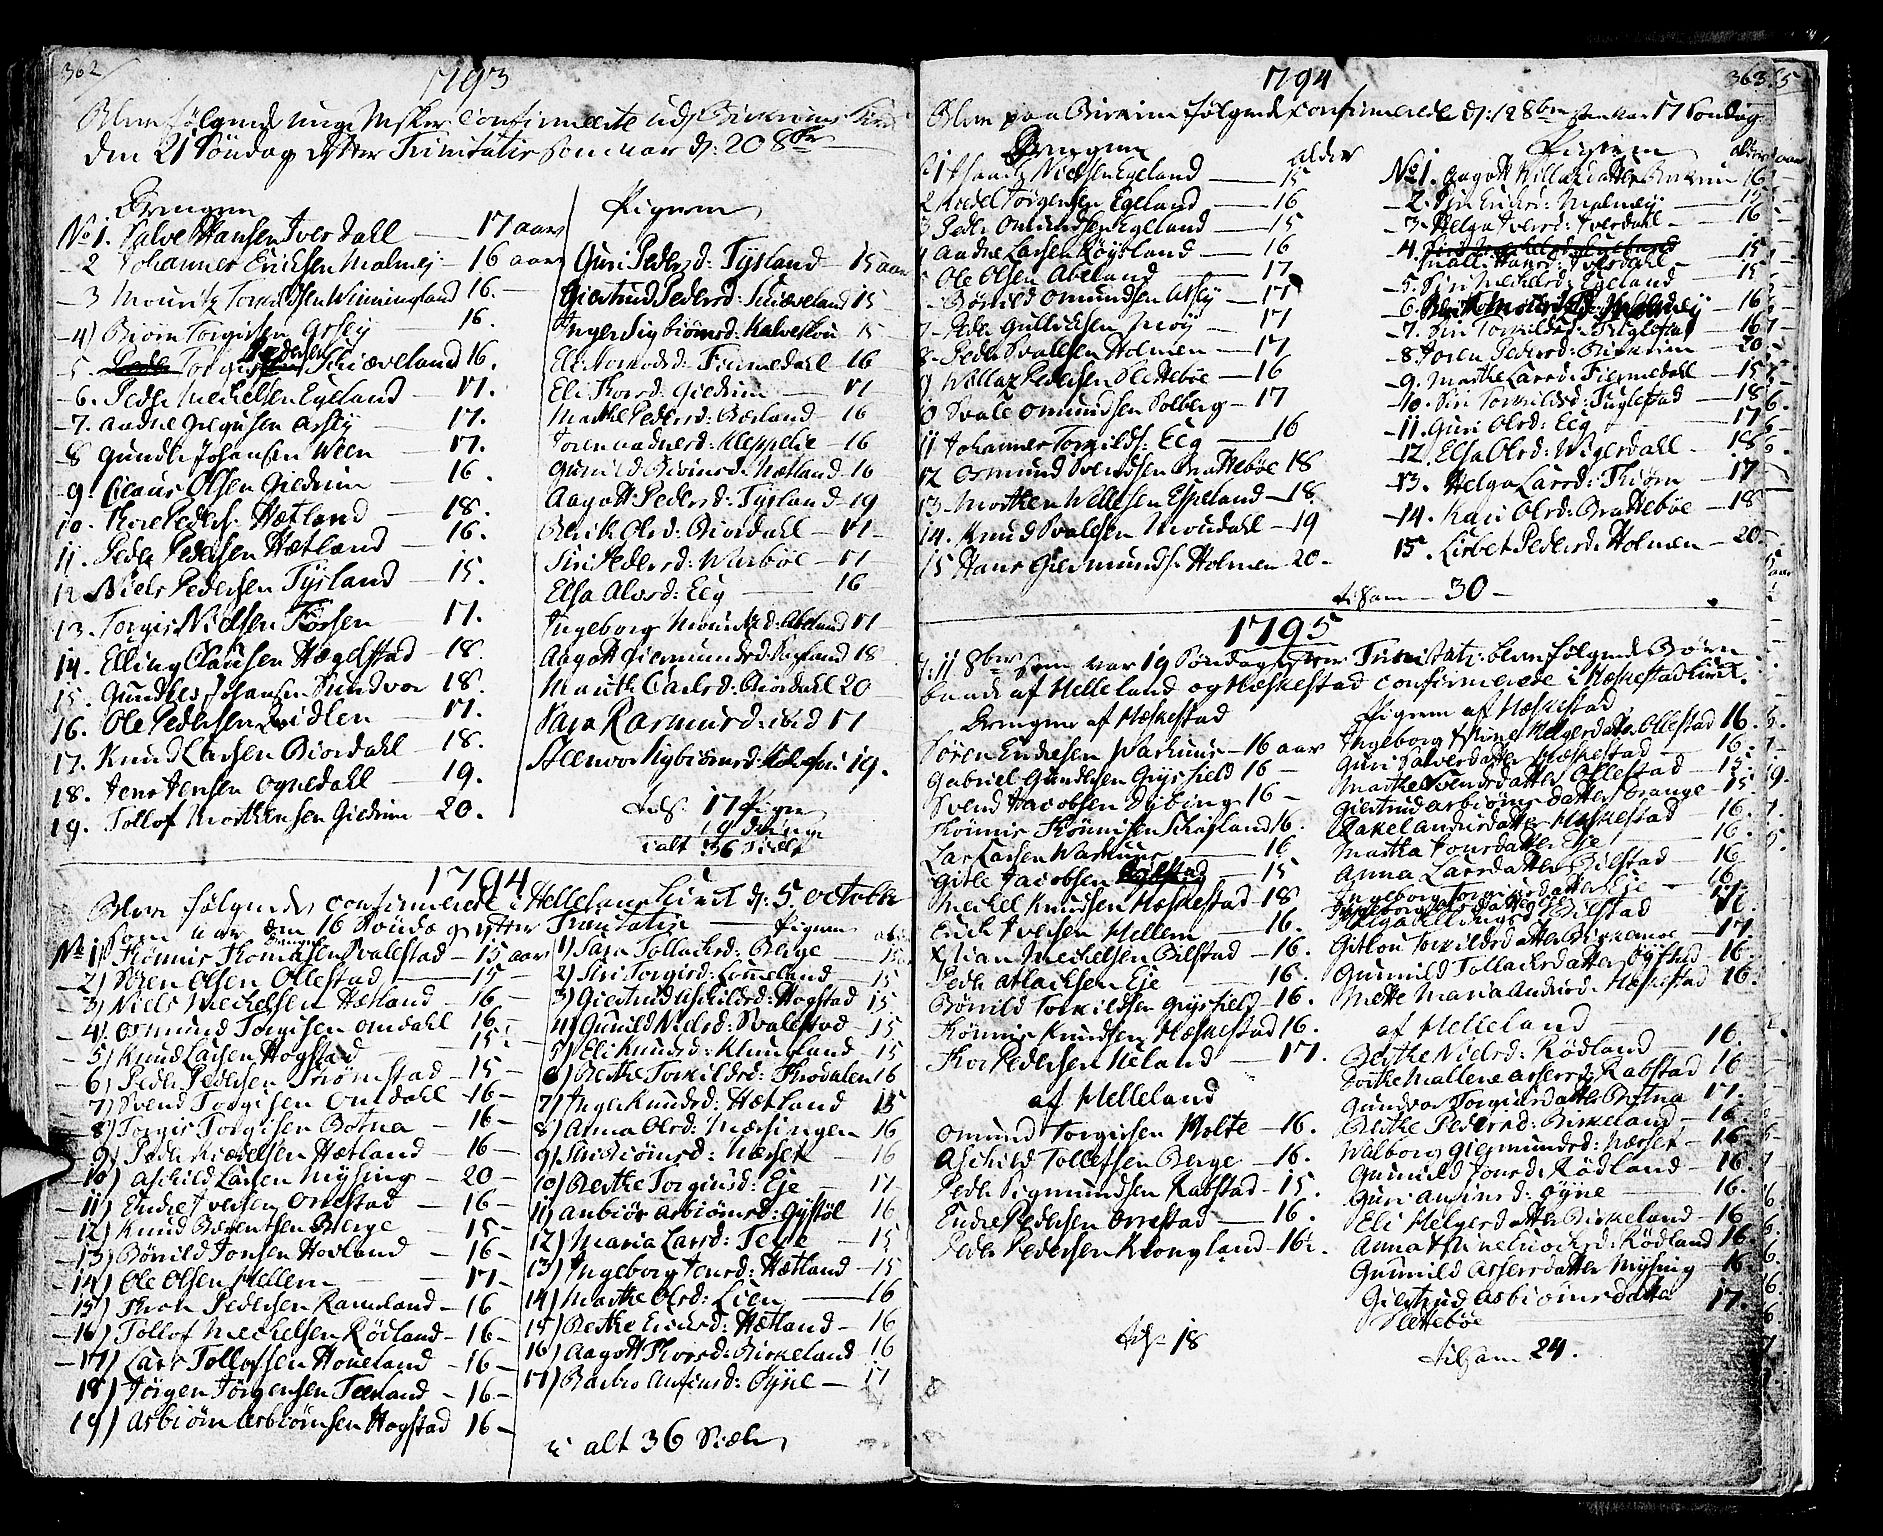 362
1793
Bleve følgende unge Msker Confirmeerte udj Birkrims Kirke
den 21 Søndag efter Trinitatis som var d: 20 8br
Drengene
No 1. Salve Hansen Iverdahl — 17 aar
2 Johannes Ericksen Malmej — 16 aar
3 Mouritz Tormodsen Winningland 16.
4) Biørn Torgersen Asej — 16.
5. Torgier Pedersen Skiæveland 16.
6. Peder Meckelsen Egeland — 17.
7. Aadne Gregersen Asej — 17.
8 Gundle Johansen Ween — 17.
9. Claus Olsen Giedrim — 16.
10. Thore Peders: Hætland — 18.
11. Peder Pedersen Hætland — 16.
12 Niels Pedersen Tÿsland — 15.
13. Torgier Nielsen Fossen — 17.
14. Elling Clausen Hægelstad — 18.
15. Gundles Johansen Sundvor 18.
16. Ole Pedersen Lidlen — 17.
17. Knud Larsen Biordahl — 18.
18. Jens Jensen Ognedahl — 19.
19. Tollof Morthensen Giedrim 20.
Pigerne
Guri Pedersd: Tÿsland — 15 aar
Giertrud Pedersd: Skiæveland 15
Inger Sigbiørnsd: Kalveskou 15
Eli Tormodsd: Fiermedahl — 16
Eli Thorsd: Giedrim — 17
Marthe Pedersd: Børland 16
Toren Aadnesd: Kleppelie — 16
Gunild Eivinsd: Hætland 16
Aagott Pedersd: Tÿsland — 19
Berit Olsd: Biordahl — 17
Siri Pedersd: Warbøe — 17
Elsa Alvsd: Eeg — 16
Ingeborg Mouritzd: Abeland 17
Aagott Giermundsd: 18
Marith Carlsd: Biordahl 20
Sara Rasmusd: ibid 17
Allewor Sigbiørnsd: 19.
tils. 17 Piger
19 Drenge
i alt 36 Siæle
1794
Bleve følgende confirmerede i Hellelands Kirke d: 5. October
som var den 16 Søndag efter Trinitatis
Drenge
Pigerne
No 1) Thønnis Thomasen Svalestad — 15 aar
2) Søren Olsen Ollestad — 15 —
3) Niels Meckelsen Hætland — 16 —
4) Osmund Torgisen Omdahl — 16 —
5) Knud Larsen Hogstad — 15 —
6) Peder Pedersen Strømstad — 15 —
7) Svend Torgisen Omdahl — 16 —
8) Torgis Torgisen Botna — 16 —
9) Peder Mickelsen Hætland — 16 —
10) Aschild Larsen Mysing — 20 —
11) Endre Iversen Orrestad — 16 —
12) Knud Bærentsen Berge — 15 —
13) Bønild Jonsen Hovland — 16 —
14) Ole Olsen Hellem — 17 —
15) Thore Pedersen Ramsland — 16
16) Tollof Meckelsen Rødland — 16 —
17) Lars Tollofsen Hoveland — 16 —
18) Jørgen Jørgensen Terland — 16 —
19) Asbiørn Asbiørnsen Hogstad 16 —
1) Sara Tollacksd: Berge
2) Siri Torgisd: Lomeland — 15
3) Giertrud Aschildsd: Hogstad 15
4) Gunild Nielsd: Svalestad — 15
5) Eli Knudsd: Klungland 15
6) Berthe Torkildsd: Thodalen 16
7) Inger Knudsd: Hætland 15
8) Anna Olsd: Mæssingen 16
9) Siri Biørnsd: Nærset — 16
10) Berthe Torgiusd: Eje — 17
11) Anbiør Asbiørnsd: Gystøl 16
12) Maria Larsd: Teie — 15
13) Ingeborg Jensd: Hætland — 15
14) Marthe Olsd: Lien — 16
15) Berthe Eivindsd: Hætland — 16
16) Aagott Thorsd: Birkeland 16
17) Barbro Ansinsd: Øÿne — 17
i alt 36 Siæle
363
1794
Bleve paa Birkrim følgende confirmerede d: 12 8br som var 17 Søndag
Drengene alder
1 Mouritz Nielsen Egeland — 15
2 Roel Jørgensen Egeland — 16
3 Peder Omundsen Egeland — 15
4 Aadne Larsen Røÿsland — 16
5 Ole Olsen Abeland — 17
6 Bønild Omundsen Asej — 17
7 Peder Gullichsen Moÿ — 17
8 Peder Svalesen Holmen — 17
9 Willaz Pedersen Slettebøe — 16
10 Svale Omundsen Solberg — 17
11 Johannes Torkilds: Eeg — 16
12 Osmund Svendsen Brattebøe 18
13. Morthen Wellesen Espeland — 18.
14. Knud Svalesen Moudahl — 19
15 Hans Giermunds: Holmen 20 —
Pigerne alder aar
No 1. Aagott Willazdatter Birkrim 16
2. Siri Ericksd: Malmej — 15
3. Helga Iversd: Iverdahl — 16
4. Malli Hansd: Iverdahl — 15
5. Siri Meckelsd: Egeland 15
6. 16
7. Siri Torkildsd: Fuglestad 16
8 Toren Pedersd: Birkrim — 20
9. Marthe Larsd: Fiermedahl — 15
10. Siri Torkildsd: Fuglestad — 18
11. Guri Olsd: Eeg — 17
12. Elsa Olsd: Wigesdahl — 18
13. Helga Larsd: Thiørn — 17
14. Kari Olsd: Brattebøe — 18
15. Lisbet Pedersd: Holmen — 20 —
tilsam — 30 —
1795
d: 11 8br som var 19 Søndag efter Trinitatis bleve følgende Børn
baade af Helleland og Heskestad Confirmerede i Heskestad Kirke.
Drengene af Heskestad
Søren Endresen Warhuus — 16 aar
Gabriel Gundlesen Grÿsheld 16 —
Svend Jacobsen Dybing 16 —
Thønnis Thønnisen Skaaland 16.
Lars Larsen Warhuus — 16
Gitle Jacobsen — 15
Meckel Knudsen Heskestad — 18
Erick Iversen Hellem — 16.
Stian Meckelsen Bilstad — 16.
Peder Atlacksen Eje — 16.
Bønild Torkildsen Grÿsheld — 16.
Thønnis Knudsen Heskestad 16.
Thore Pedersen Ueland — 17.
af Helleland
Omund Torgisen Molte — 16.
Aschild Tollefsen Berge — 16.
Peder Sigmundsen Rabstad — 15.
Endre Pedersen Orrestad — 16.
Peder Pedersen Klongland — 16.
tils 18
Pigerne af Heskestad
Ingeborg Helgesdatter Ollestad 16.
Guri Salvesdatter Heskestad — 16.
Marthe Svendsdatter Ollestad — 15.
Giertrud Asbiørnsdatter Drange — 15.
Rakel Andersdatter Heskestad — 16.
Martha Jonsdatter Eje — 16.
Anna Larsdatter Bilstad — 16
Ingeborg Torgiersdatter Eje — 16.
Bilstad 17.
Gitlou Torkildsdatter Birkemoe — 17.
Gunnild Tollacksdatter Øÿstad — 16.
Mette Maria Andersd: Heskestad 16.
af Helleland
Berthe Nielsd: Rødland — 16.
Dorthe Mallene Assersd: Rabstad 16
Gundvor Torgiersdatter Botna 17.
Berthe Pedersd: Birkeland — 16.
Walborg Giermundsd: Nærset — 16.
Gunnild Jonsd: Rødland — 16.
Guri Ansinsd: Øÿne — 16.
Eli Helgesdatter Birkeland — 16
Anna Rødland 16.
Gunnild Assersdatter Mysing — 16.
Giertrud Asbiørnsdatter
Slettebøe 17.
tilsam 24.